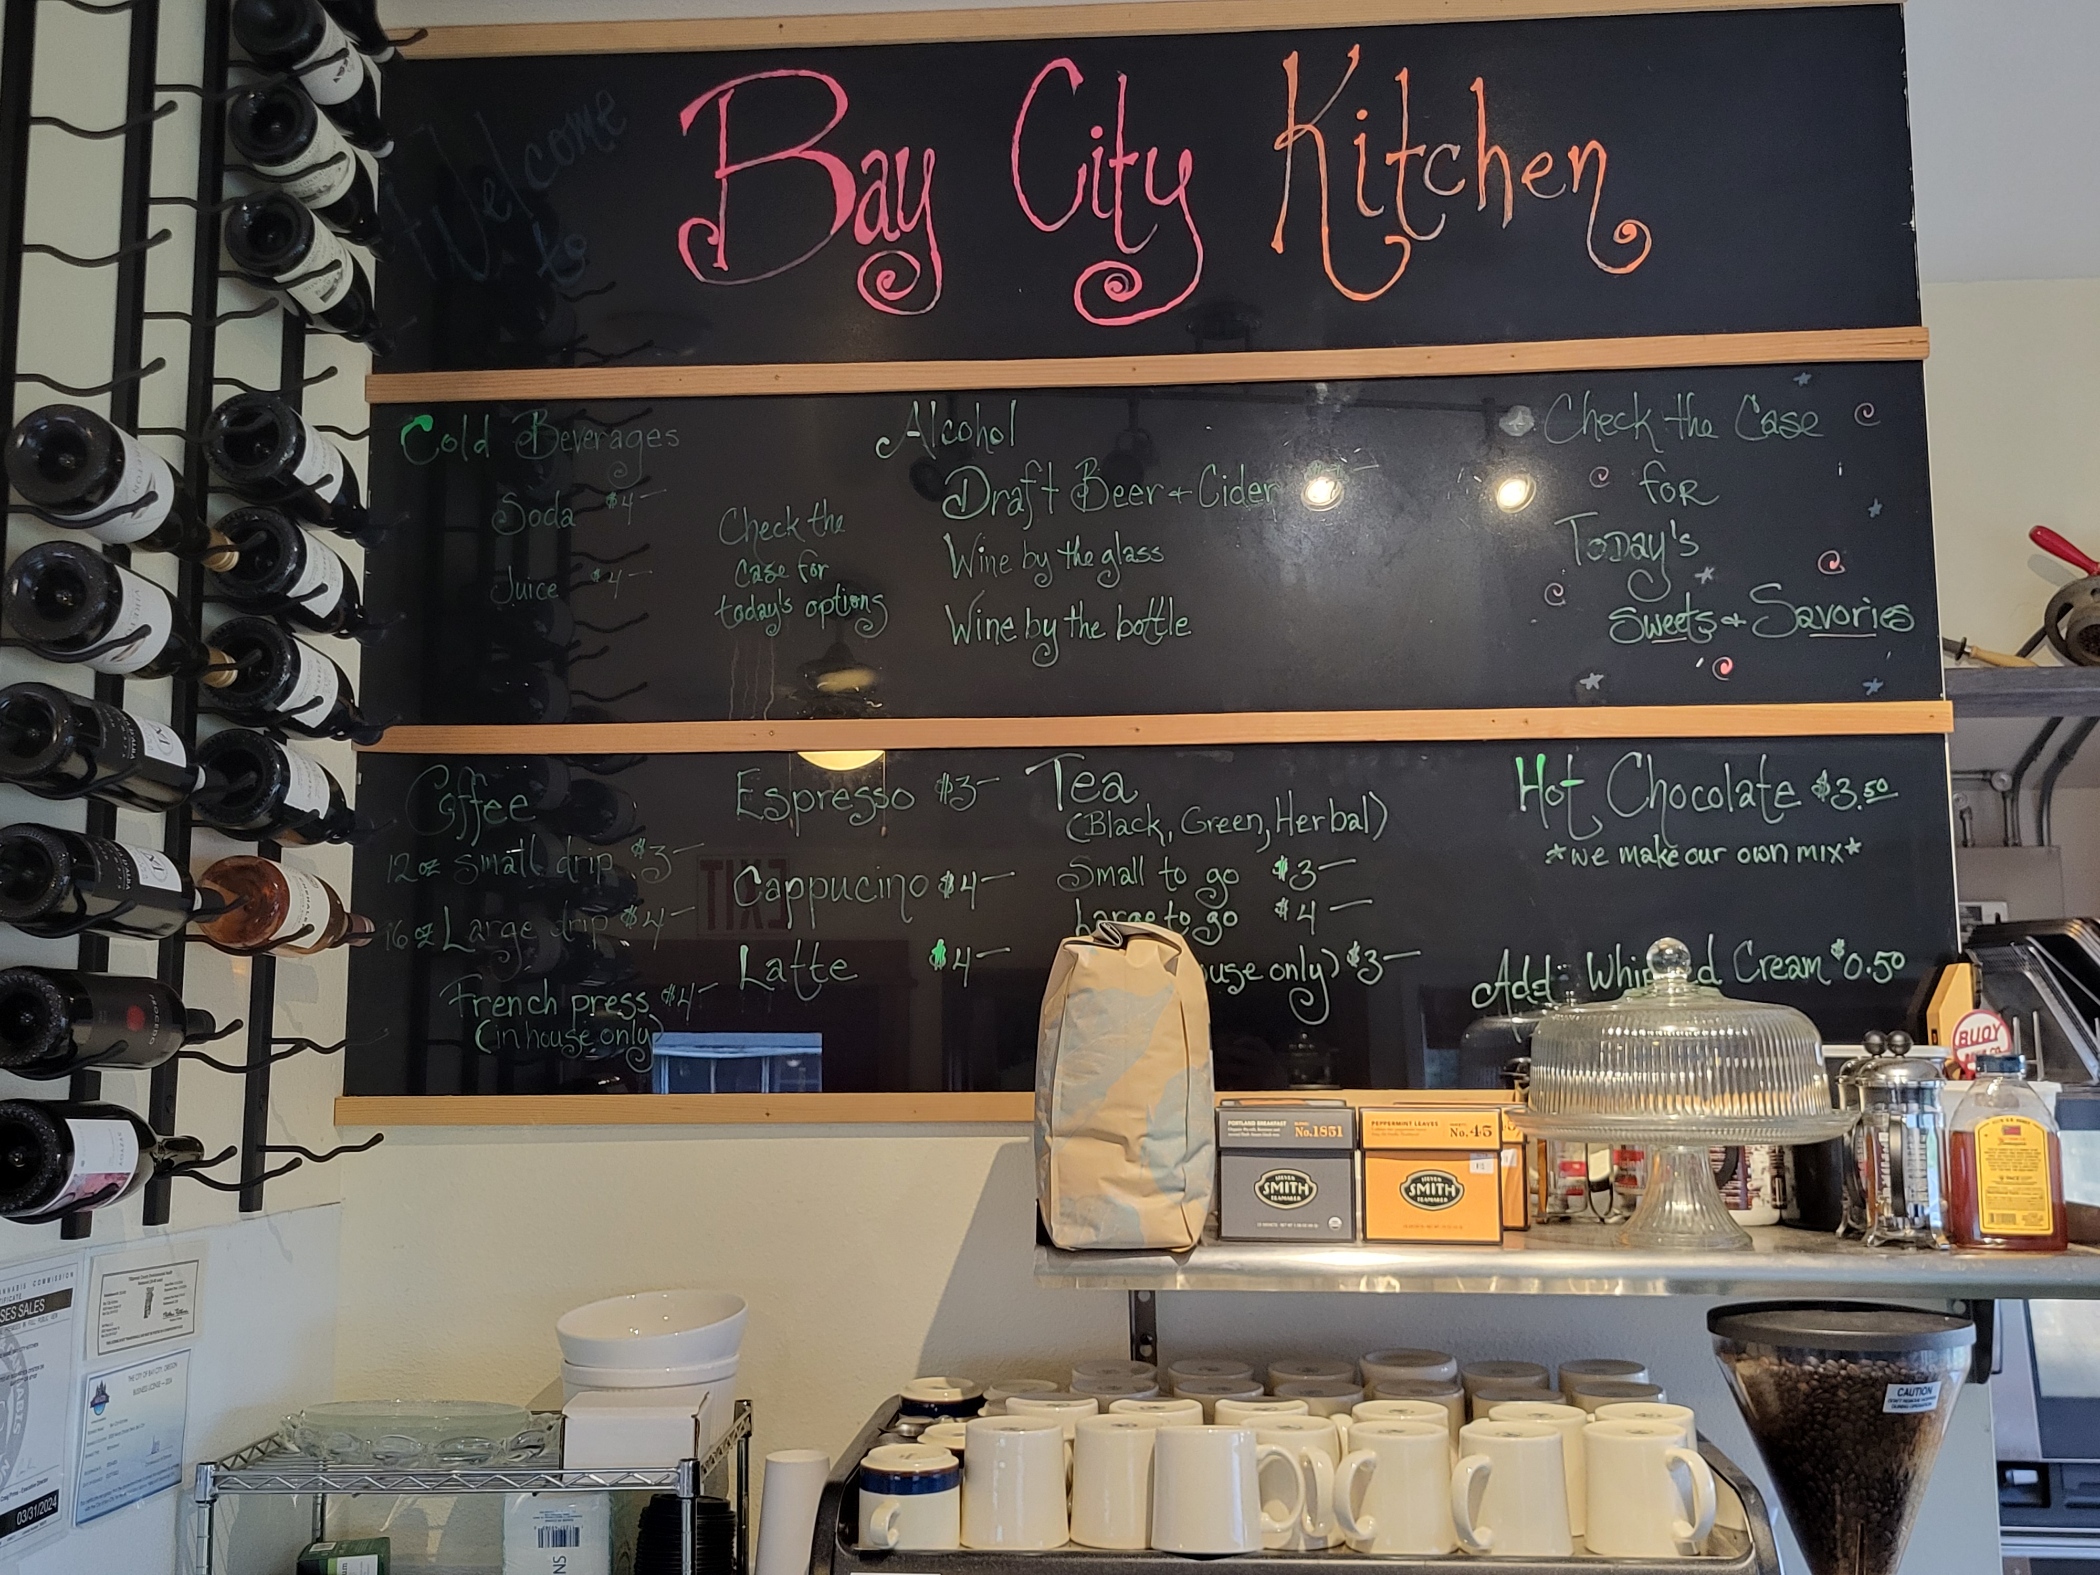 Welcome
to
Bay City Kitchen
Cold Beverages
Soda $4
Juice $4
Check the
case for
today's options
Alcohol
Draft Beer + Cider
Wine by the glass
Wine by the bottle
Check the Case
for
Today's
Sweets + Savories
Coffee
12oz Small drip $3
16oz Large drip $4
French press $4
(in house only)
Espresso $3
Cappucino $4
Latte $4
Tea
(Black, Green, Herbal)
Small to go $3
Large to go $4
use only) $3
Hot Chocolate $3.50
*we make our own mix*
Add Whipped Cream $0.50
EXIT
PORTLAND BREAKFAST
No.1851
STEVEN
SMITH
TEAMAKER
PEPPERMINT LEAVES
No.45
STEVEN
SMITH
TEAMAKER
BUOY
CAUTION
SES SALES
03/31/2024
THE CITY OF BAY CITY, OREGON
BUSINESS LICENSE - 2024